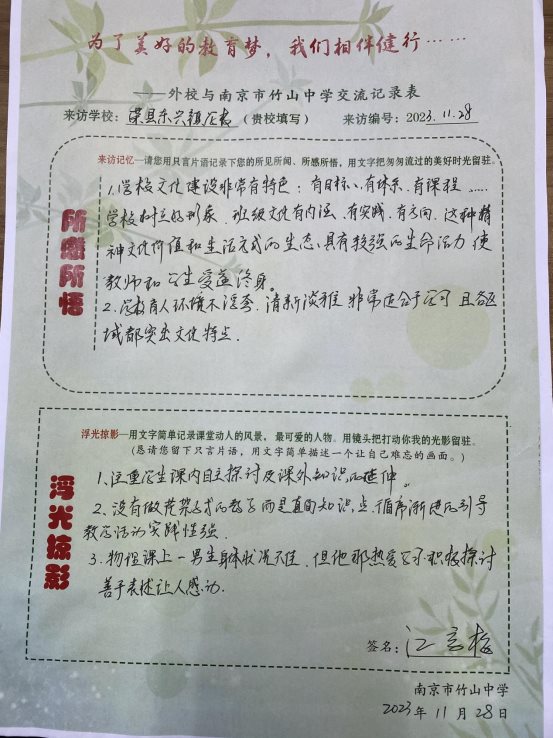 为了美好的教育梦，我们相伴健行……
——外校与南京市竹山中学交流记录表
来访学校：荣县东兴镇 （贵校填写） 来访编号：2023.11.28
来访记忆—请您用只言片语记录下您的所见所闻、所感所悟，用文字把匆匆流过的美好时光留驻。
所感所悟
1.学校文化建设非常有特色：有目标、有体系、有课程……
学校树立好形象、班级文化有内涵、有实践、有方向、这种精
神文化价值和生活方式的生态、具有较强的生命活力、使
教师和学生受益终身。
2.学校育人环境不浮夸、清新淡雅、非常适合学习，且各区
域都突出文化特点.
浮光掠影—用文字简单记录课堂动人的风景，最可爱的人物。用镜头把打动你我的光影留驻。
（恳请您留下只言片语，用文字简单描述一个让自己难忘的画面。）
浮光掠影
1、注重学生课内自主探讨及课外知识的延伸。
2、没有做花架子式的教学而是直面知识点、循序渐进的引导
教学活动实践性强.
3.物理课上一男生身体状况不佳，但他那热爱学习积极探讨
善于表述让人感动.
签名：江
南京市竹山中学
2023年11月28日